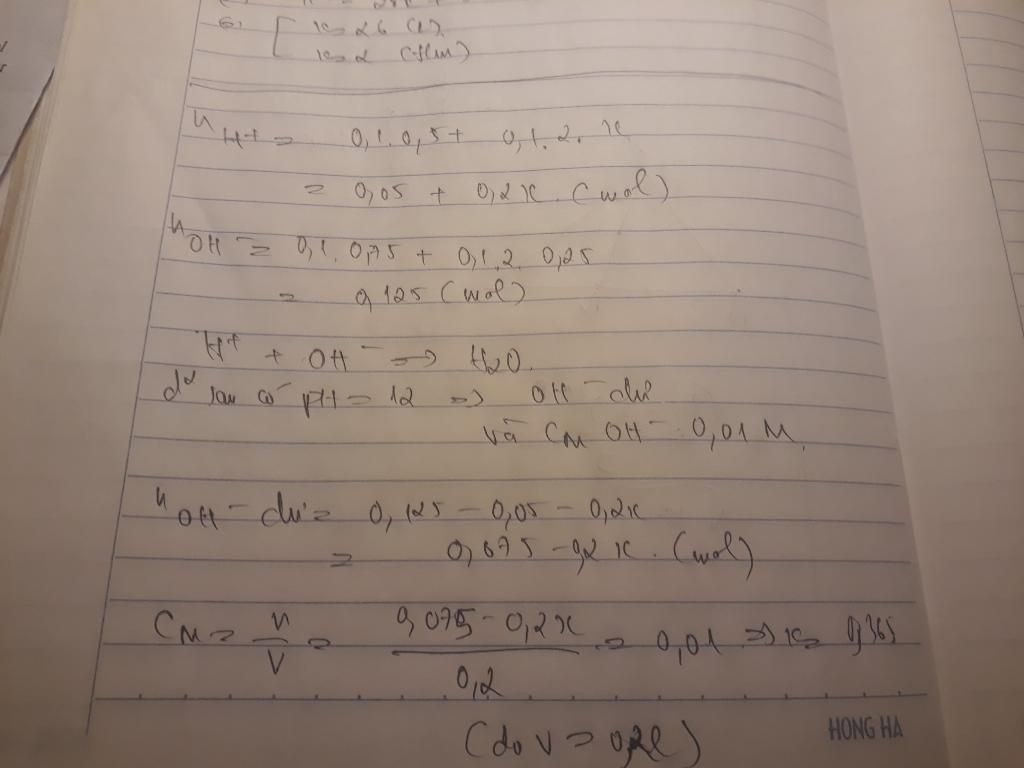 [ x = 26 (l)
x = 2 (t/m)
nH+ = 0,1.0,5 + 0,1.2.x
= 0,05 + 0,2x. (mol)
nOH- = 0,1.0,75 + 0,1.2.0,25
= 0,125 (mol)
H+ + OH- => H2O.
d² sau có pH = 12 => OH- dư
và CM OH- 0,01 M.
nOH- dư = 0,125 - 0,05 - 0,2x
= 0,075 - 0,2x. (mol)
CM = n/V = (0,075 - 0,2x)/0,2 = 0,01 => x = 0,365
(do V = 0,2l)
HONG HA